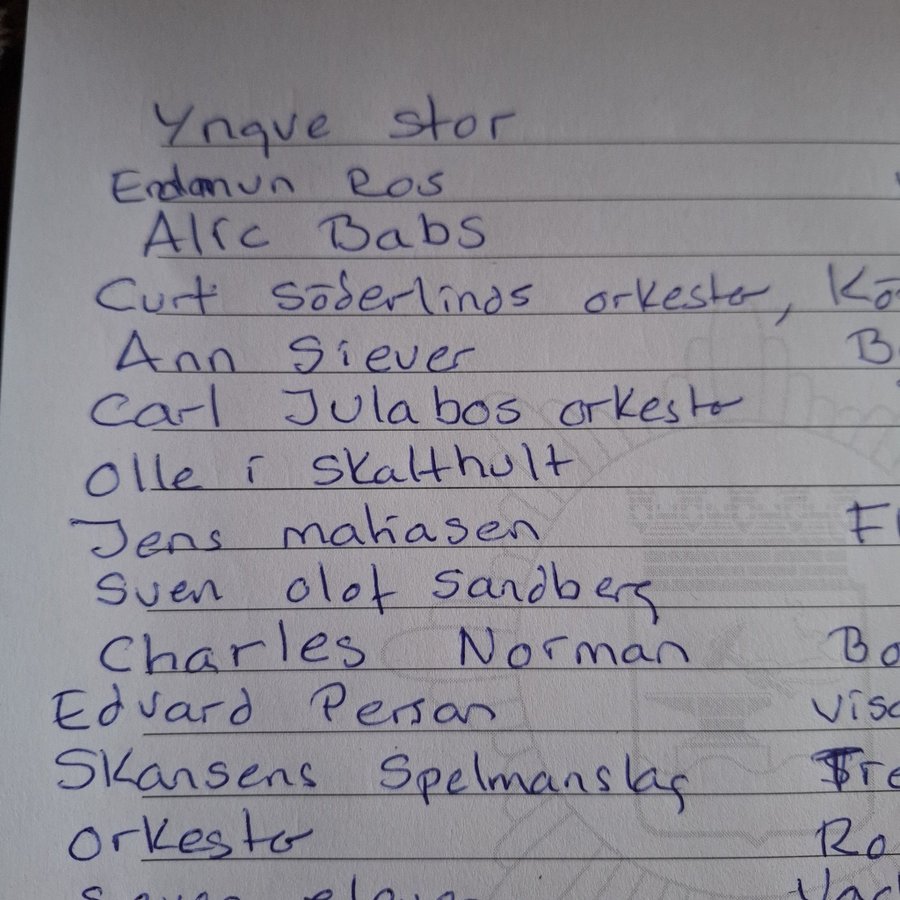 Yngve stor
Endmun Ros
Alic Babs
Curt Söderlinds orkester, Kö
Ann Siever B
Carl Julabos orkester
Olle i Skalthult
Jens mahasen F
Sven olof Sandberg
Charles Norman Bo
Edvard Persson visc
Skansens Spelmanslag Tre
orkester Ro